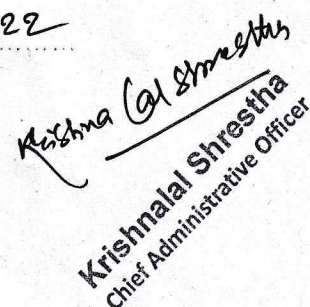 22
Krishna Lal Shrestha
Krishnalal Shrestha
Chief Administrative Officer